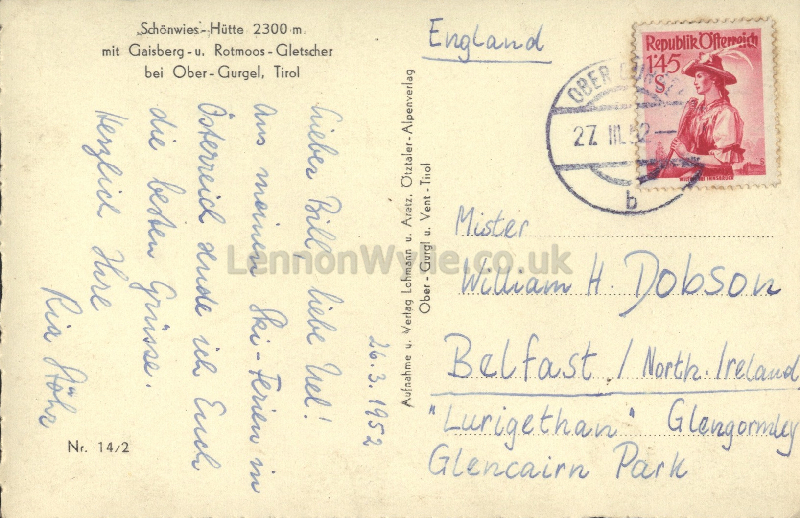 "Schönwies"-Hütte 2300 m.
mit Gaisberg- u. Rotmoos-Gletscher
bei Ober-Gurgel, Tirol
26.3.1952
Lieber Bill, liebe Uel!
Aus meinen Ski-Ferien in
Österreich sende ich Euch
die besten Grüsse.
Herzlich Ihre
Ria
Nr. 14/2
Aufnahme u. Verlag Lohmann u. Aretz, Ötztaler-Alpenverlag
Ober-Gurgl u. Vent-Tirol
England
Republik Österreich
1'45
S
OBER GURGL
27. III. 52
b
Mister
William H. Dobson
Belfast / North. Ireland
"Lurigethan" Glengormley
Glencairn Park
LennonWylie.co.uk